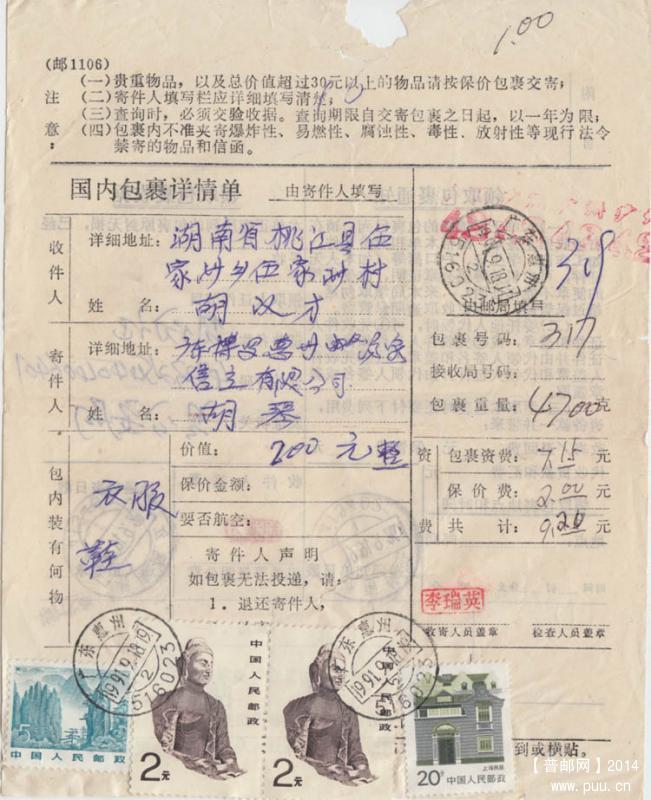 1.00
(邮1106)
注意:
(一)贵重物品,以及总价值超过30元以上的物品请按保价包裹交寄;
(二)寄件人填写栏应详细填写清楚;
(三)查询时,必须交验收据。查询期限自交寄包裹之日起,以一年为限;
(四)包裹内不准夹寄爆炸性、易燃性、腐蚀性、毒性、放射性等现行法令
禁寄的物品和信函。
国内包裹详情单 由寄件人填写
收件人
详细地址:湖南省桃江县伍
家沙乡伍家沙村
姓 名:胡汉才
寄件人
详细地址:
有限公司
姓 名:胡琴
包内装有何物
衣服
鞋
价值:200元整
保价金额:
要否航空:
寄件人声明
如包裹无法投递,请:
1.退还寄件人,
由邮局填写
包裹号码:317
接收局号码:
包裹重量:4700克
资费
包裹资费:7.15元
保价费:2.00元
共计:9.20元
李瑞英
收寄人员盖章 检查人员盖章
广东惠州
1991.9.18.19
2
516023
广东惠州
1991.9.18
2
516023
5 中国人民邮政
中国人民邮政
2元
中国人民邮政
2元
上海民居
20分 中国人民邮政
到或横贴。
【普邮网】2014
www.puu.cn